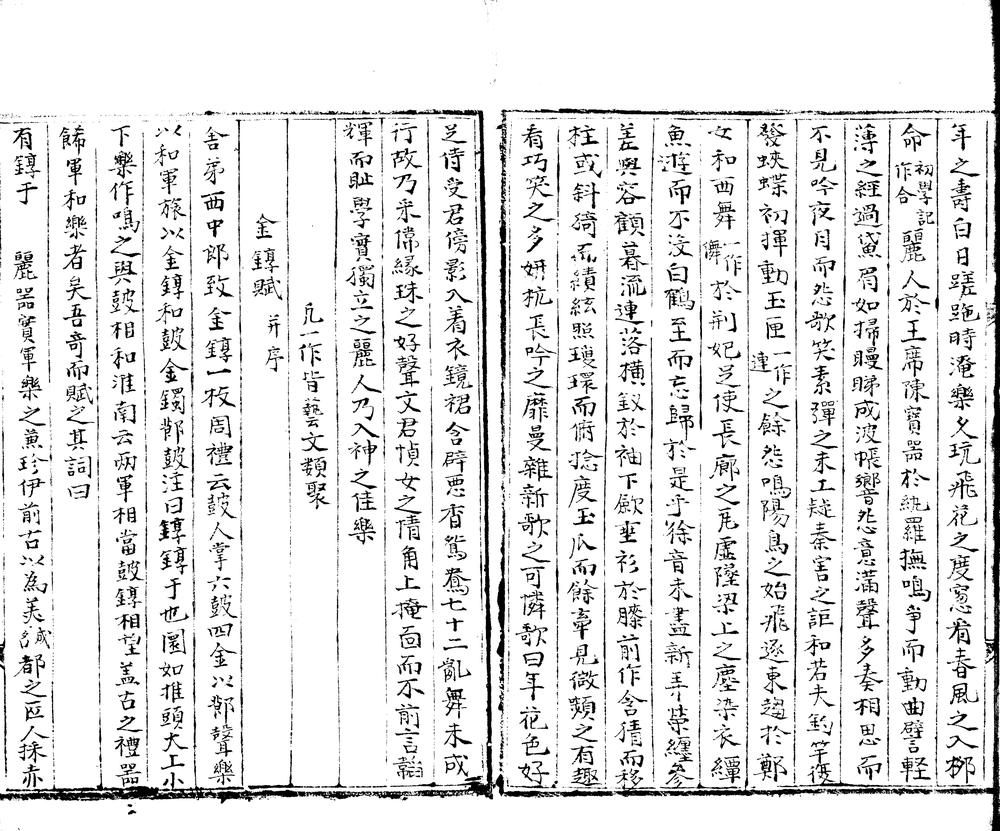 年之壽白日蹉跎時淹樂久玩飛花之度窓看春風之入栁
命初學記作合麗人於王席陳寶器於紈羅撫鳴爭而動曲譬輕
薄之經過黛眉如掃曼睇成波帳響怨意滿聲多奏相思而
不見吟夜月而怨歌笑素彈之未工疑秦害之詎和若夫釣竿復
發蛺蝶初揮動玉匣一作連之餘怨鳴陽鳥之始飛逐東趨於鄭
女和西舞一作儛於荆妃足使長廊之瓦虛墜梁上之塵染衣繟
魚遊而不没白鶴至而忘歸於是乎徐音未盡新弄縈纏參
差與容顧暮流連落橫釵於袖下歛垂衫於膝前作含猜而移
柱或斜猗而績絃照瓊環而俯捻度玉爪而餘牽見微頪之有趣
看巧笑之多妍杭長吟之靡曼雜新歌之可憐歌曰年花色好
足侍愛君傍影入着衣鏡裙含辟惡香鴛鴦七十二亂舞未成
行故乃釆儒縁珠之好聲文君慎女之情角上掩面而不前言韜
輝而耻學實獨立之麗人乃入神之佳樂
凡一作皆藝文類聚
金錞賦并序
舍弟西中郎致金錞一枚周禮云鼓人掌六鼓四金以鄣聲樂
以和軍旅以金錞和鼓金鐲鄣鼓注曰錞錞于也圜如推頭大上小
下樂作鳴之與鼓相和淮南云兩軍相當鼓錞相望盖古之禮器
餙軍和樂者矣吾奇而賦之其詞曰
有錞于 麗器實軍樂之兼珍伊前古以為美咸都之匹人採赤